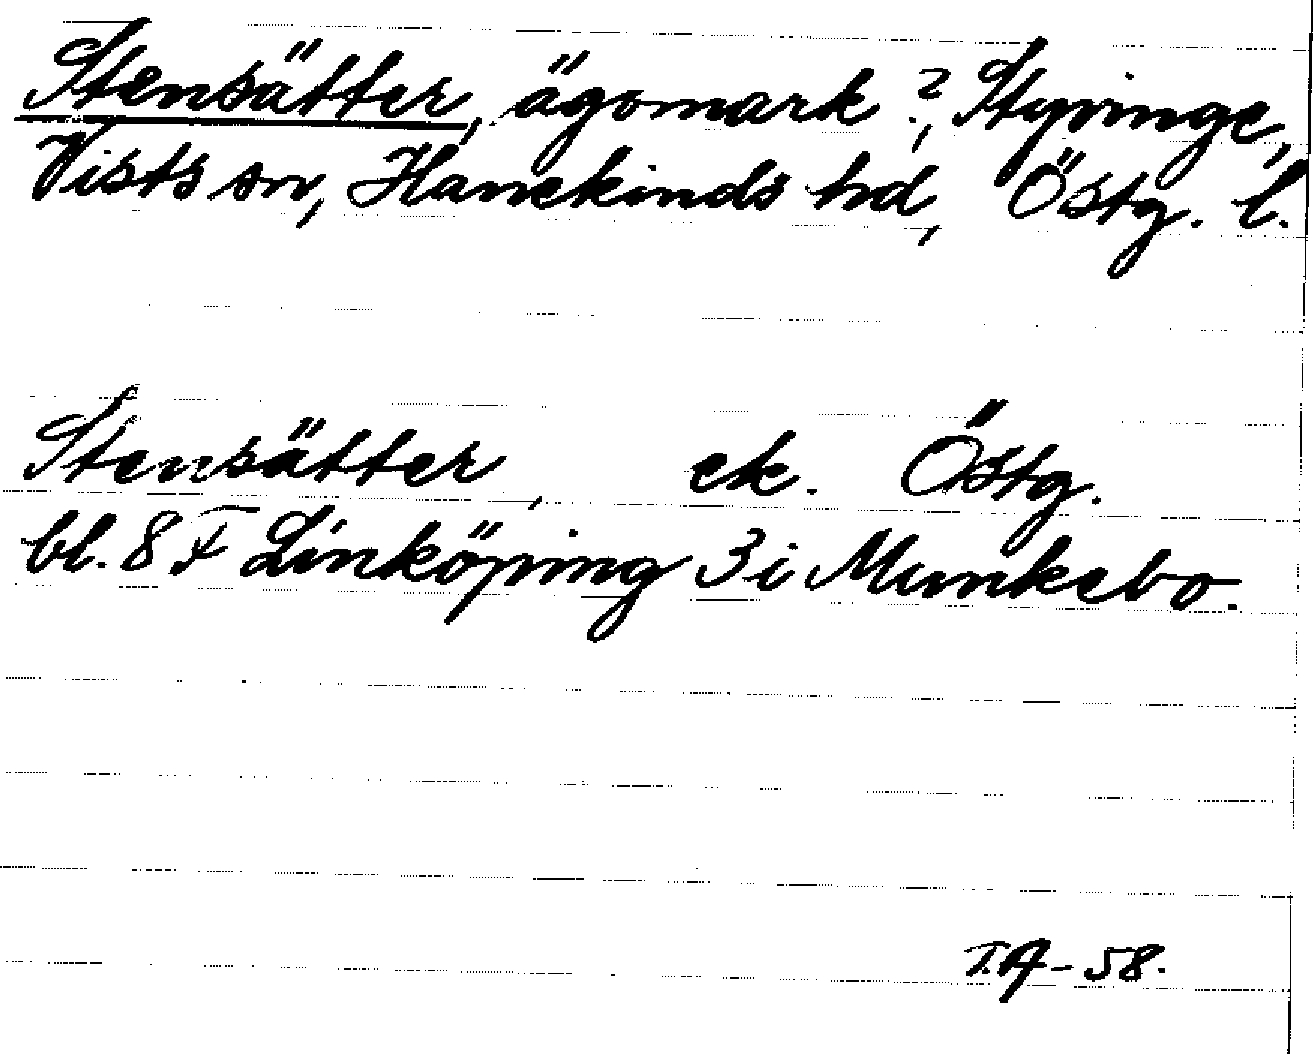 Stensätter, ägomark ?, Styvinge,
Vists sn, Hanekinds hd, Östg. l.
Stensätter, ek. Östg.
bl. 8 F Linköping 3 i Munkebo.
T.A-58.